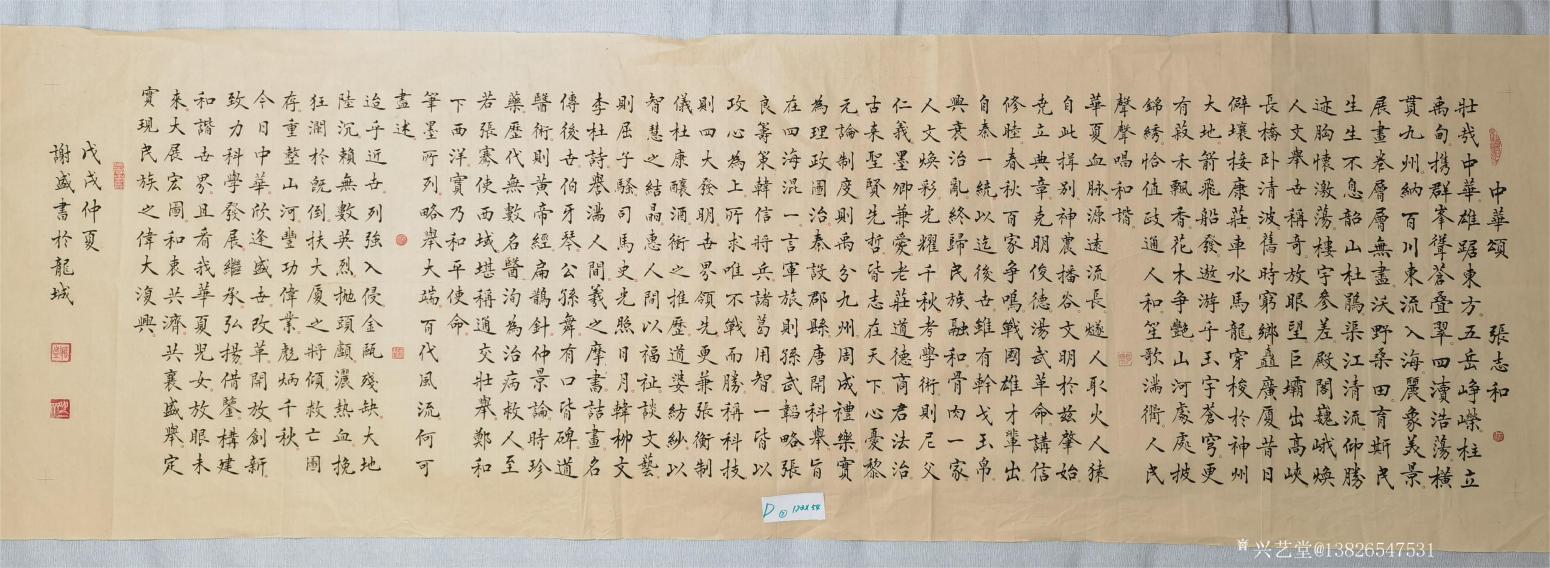 中華頌 張志和
壯哉中華雄踞東方五岳崢嶸柱立
禹甸携群峯聳蒼叠翠四瀆浩蕩橫
貫九州納百川東流入海麗象美景
展畫卷層層無盡沃野桑田育斯民
生生不息韶山杜鵑渠江清流仰勝
迹胸懷激蕩樓宇參差殿閣巍峨焕
人文舉世稱奇放眼望巨壩出高峽
長橋卧清波舊時窮鄉矗廣厦昔日
僻壤接康莊車水馬龍穿梭於神州
大地箭飛船發遨游乎玉宇蒼穹更
有嘉禾飄香花木争艷山河處處披
錦綉恰值政通人和笙歌滿衢人民
聲聲唱和諧
華夏血脉源遠流長燧人取火人猿
自此揖别神農播谷文明於兹肇始
堯立典章克明俊德湯武革命講信
修睦春秋百家争鳴戰國雄才輩出
自秦一統以迄後世雖有幹戈玉帛
興衰治亂終歸民族融和骨肉一家
人文焕彩光耀千秋考學術則尼父
仁義墨卿兼愛老莊道德商君法治
古来聖賢先哲皆志在天下心憂黎
元論制度則禹分九州周成禮樂實
為理政圖治秦設郡縣唐開科舉旨
在四海混一言軍旅則孫武韜略張
良籌策韓信將兵諸葛用智一皆以
攻心為上所求唯不戰而勝稱科技
則四大發明世界領先更兼張衡制
儀杜康釀酒衝之推歷道婆紡紗以
智慧之結晶惠人間以福祉談文藝
則屈子騷司馬史光照日月韓柳文
李杜詩譽滿人間羲之書摩詰畫名
傳後世伯牙琴公孫舞有口皆碑道
醫術則黄帝經扁鵲針仲景論時珍
藥歷代無數名醫洵為治病救人至
若張騫使西域堪稱通交壯舉鄭和
下西洋實乃和平使命
筆墨所列略舉大端百代風流何可
盡述
迨乎近世列強入侵金甌殘缺大地
陸沉賴無數英烈抛頭顱灑熱血挽
狂瀾於既倒扶大厦之將傾救亡圖
存重整山河豐功偉業彪炳千秋
今日中華欣逢盛世改革開放創新
致力科學發展繼承弘揚借鑒構建
和諧世界且看我華夏兒女放眼未
来大展宏圖和衷共濟共襄盛舉定
實現民族之偉大復興
戊戌仲夏
謝盛書於龍城
D ② 178X54
兴艺堂@13826547531